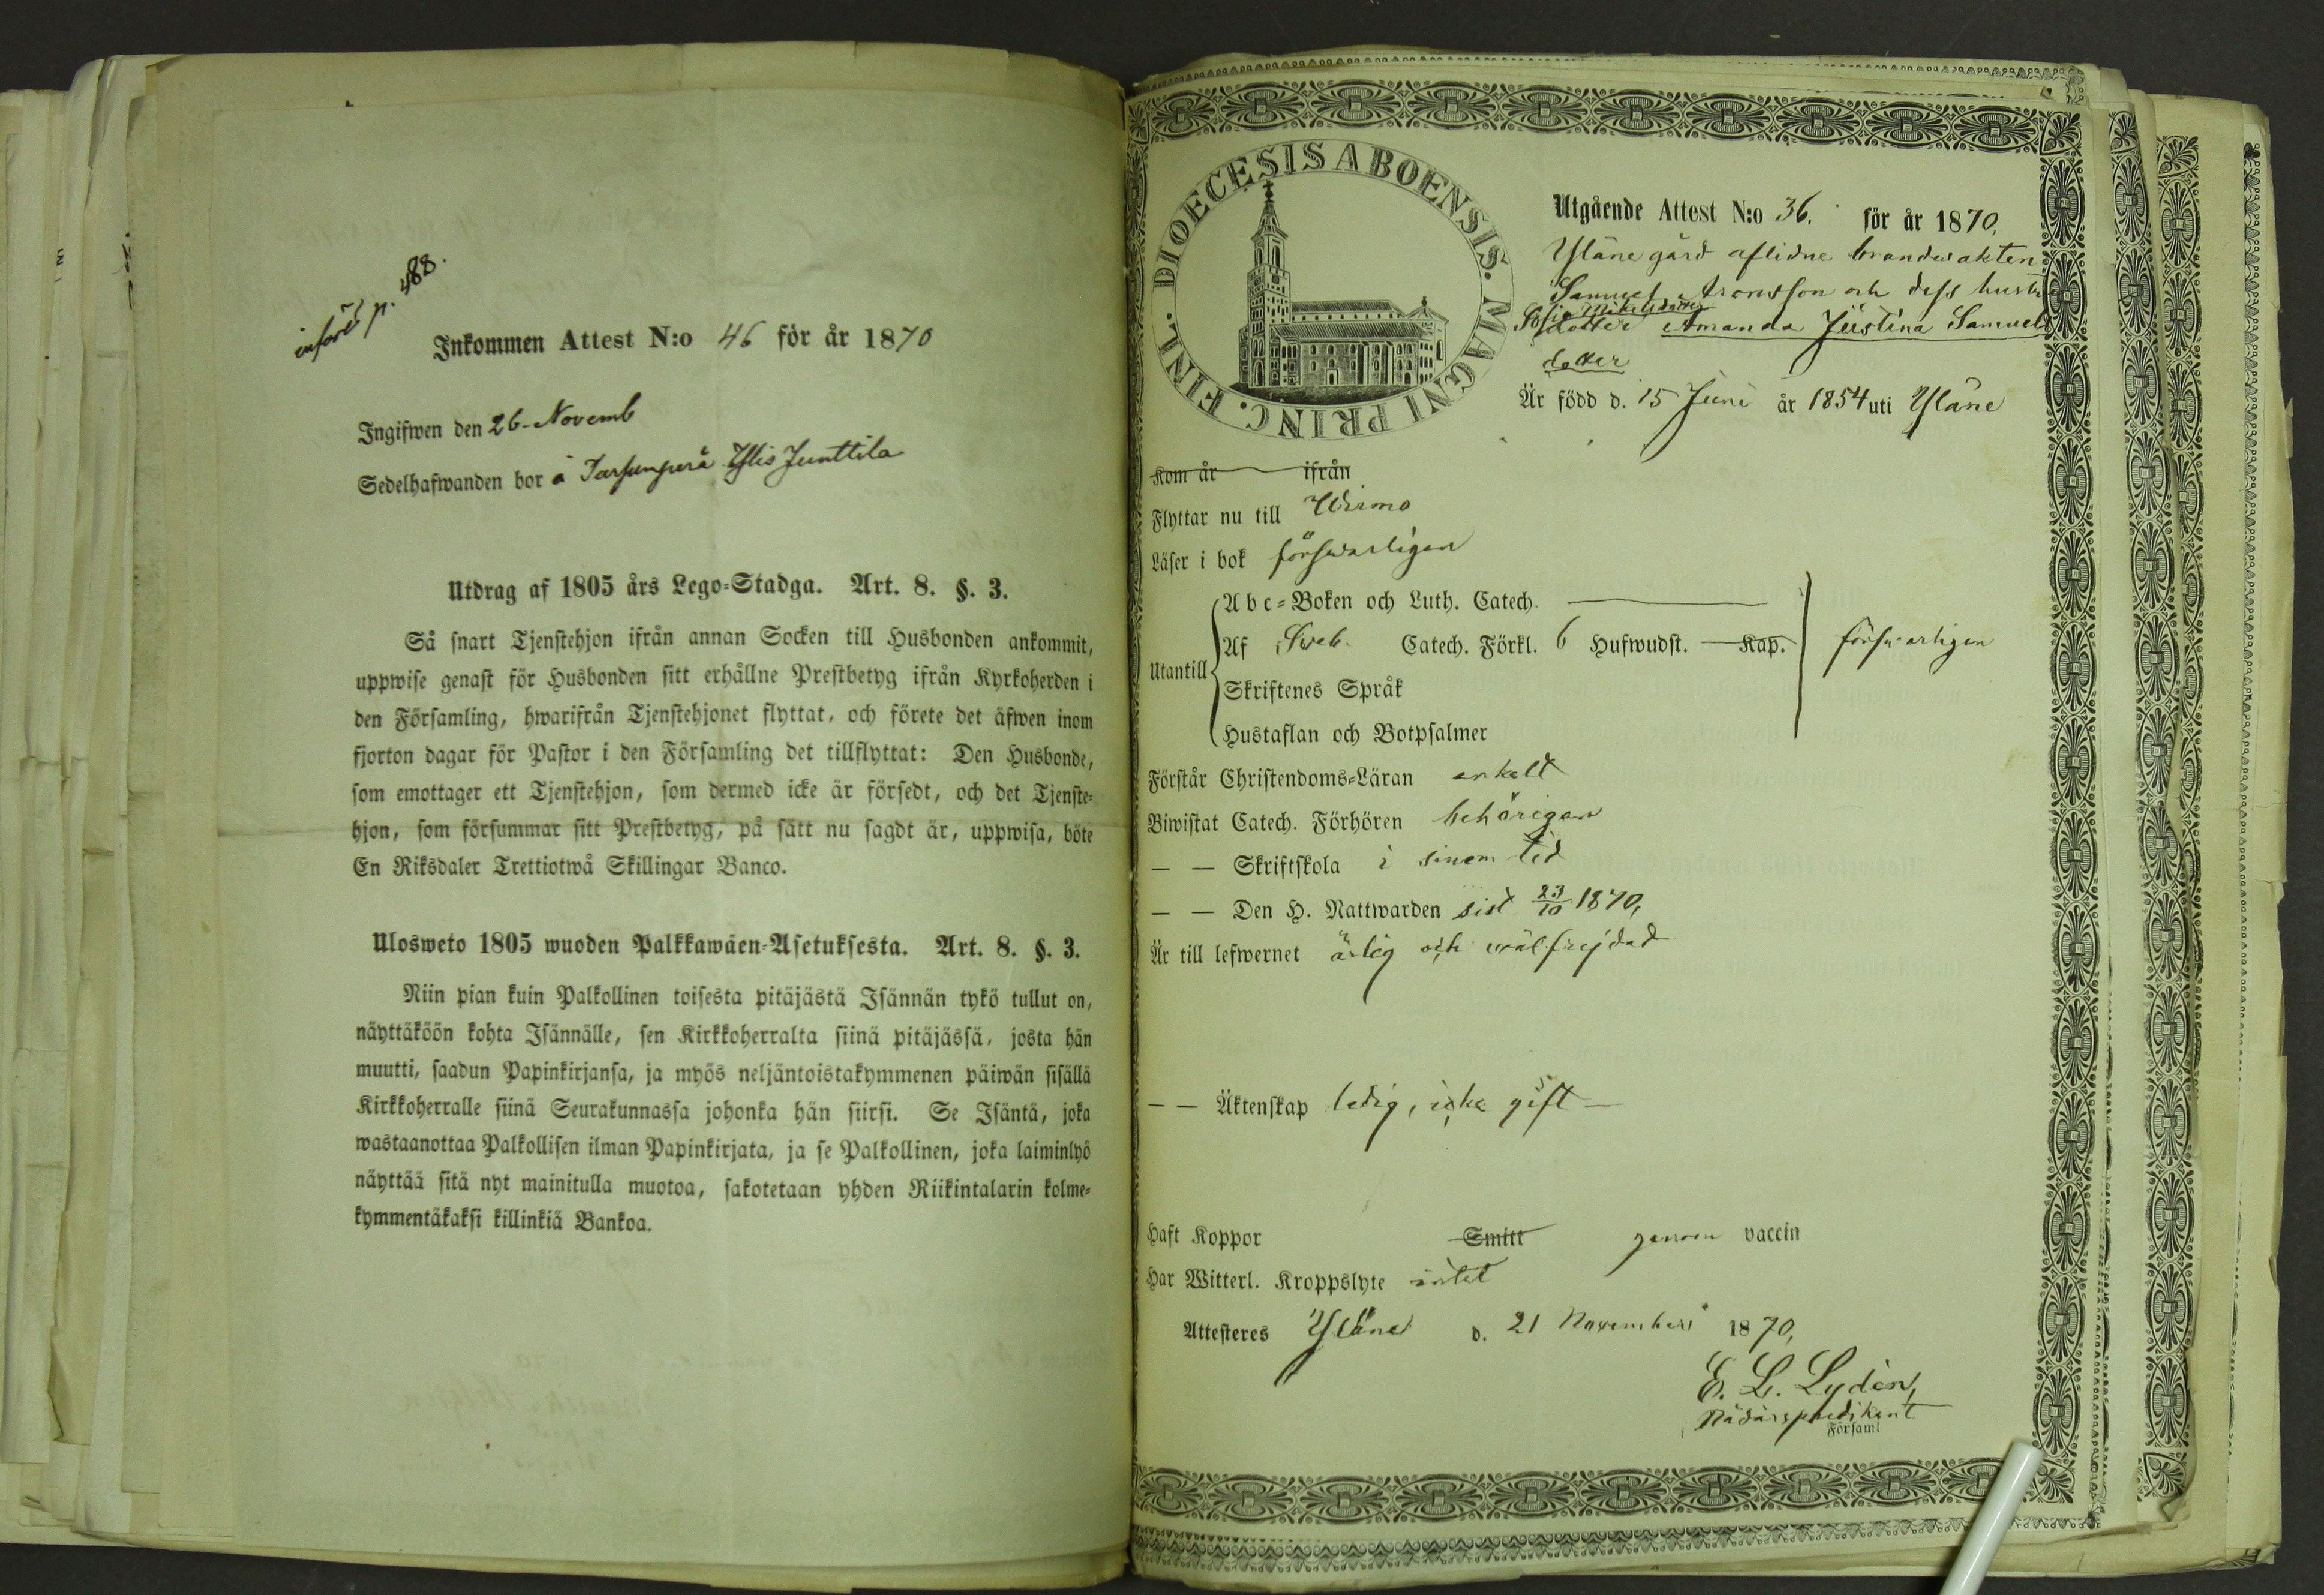 införd p. 488.
Inkommen Attest N:o 46 för år 1870
Ingifwen den 26 Novemb
Sedelhafwanden bor å Ylis Junttila
Utdrag af 1805 års Lego-Stadga. Art. 8. §. 3.
Så snart Tjenstehjon ifrån annan Socken till Husbonden ankommit,
uppwise genast för Husbonden sitt erhållne Prestbetyg ifrån Kyrkoherden i
den Församling, hwarifrån Tjenstehjonet flyttat, och förete det äfwen inom
fjorton dagar för Pastor i den Församling det tillflyttat: Den Husbonde,
som emottager ett Tjenstehjon, som dermed icke är försedt, och det Tjenste-
hjon, som försummar sitt Prestbetyg, på sätt nu sagdt är, uppwisa, böte
En Riksdaler Trettiotwå Skillingar Banco.
Ulosweto 1805 wuoden Palkkawäen-Asetuksesta. Art. 8. §. 3.
Niin pian kuin Palkollinen toisesta pitäjästä Isännän tykö tullut on,
näyttäköön kohta Isännälle, sen Kirkkoherralta siinä pitäjässä, josta hän
muutti, saadun Papinkirjansa, ja myös neljäntoistakymmenen päiwän sisällä
Kirkkoherralle siinä Seurakunnassa johonka hän siirsi. Se Isäntä, joka
wastaanottaa Palkollisen ilman Papinkirjata, ja se Palkollinen, joka laiminlyö
näyttää sitä nyt mainitulla muotoa, sakotetaan yhden Riikintalarin kolme-
kymmentäkaksi killinkiä Bankoa.
DIOECESIS ABOENSIS. MAGNI PRINC. FINL.
Utgående Attest N:o 36. för år 1870,
Yläne gård aflidne brandwakten
Samuel och dess hustru
Sofia Mikelsdotter
dotter Amanda Justina Samuels
dotter
Är född d. 15 Juni år 1854 uti Yläne
Kom år ifrån
Flyttar nu till Wirmo
Läser i bok förswarligen
Utantill
Abc-Boken och Luth. Catech.
Af Sweb. Catech. Förkl. 6 Hufwudst. Kap. förswarligen
Skriftenes Språk
Hustaflan och Botpsalmer
Förstår Christendoms-Läran enkelt
Biwistat Catech. Förhören behörigen
— — Skriftskola i sinom tid
— — Den H. Nattwarden sist 23/10 1870,
Är till lefwernet ärlig och wälfrejdad
— — Äktenskap ledig, icke gift —
Haft Koppor Smitt genom vaccin
Har Witterl. Kroppslyte intet
Attesteres Yläne d. 21 November 1870,
E. L. Lydén,
Nådårspredikant
Församl